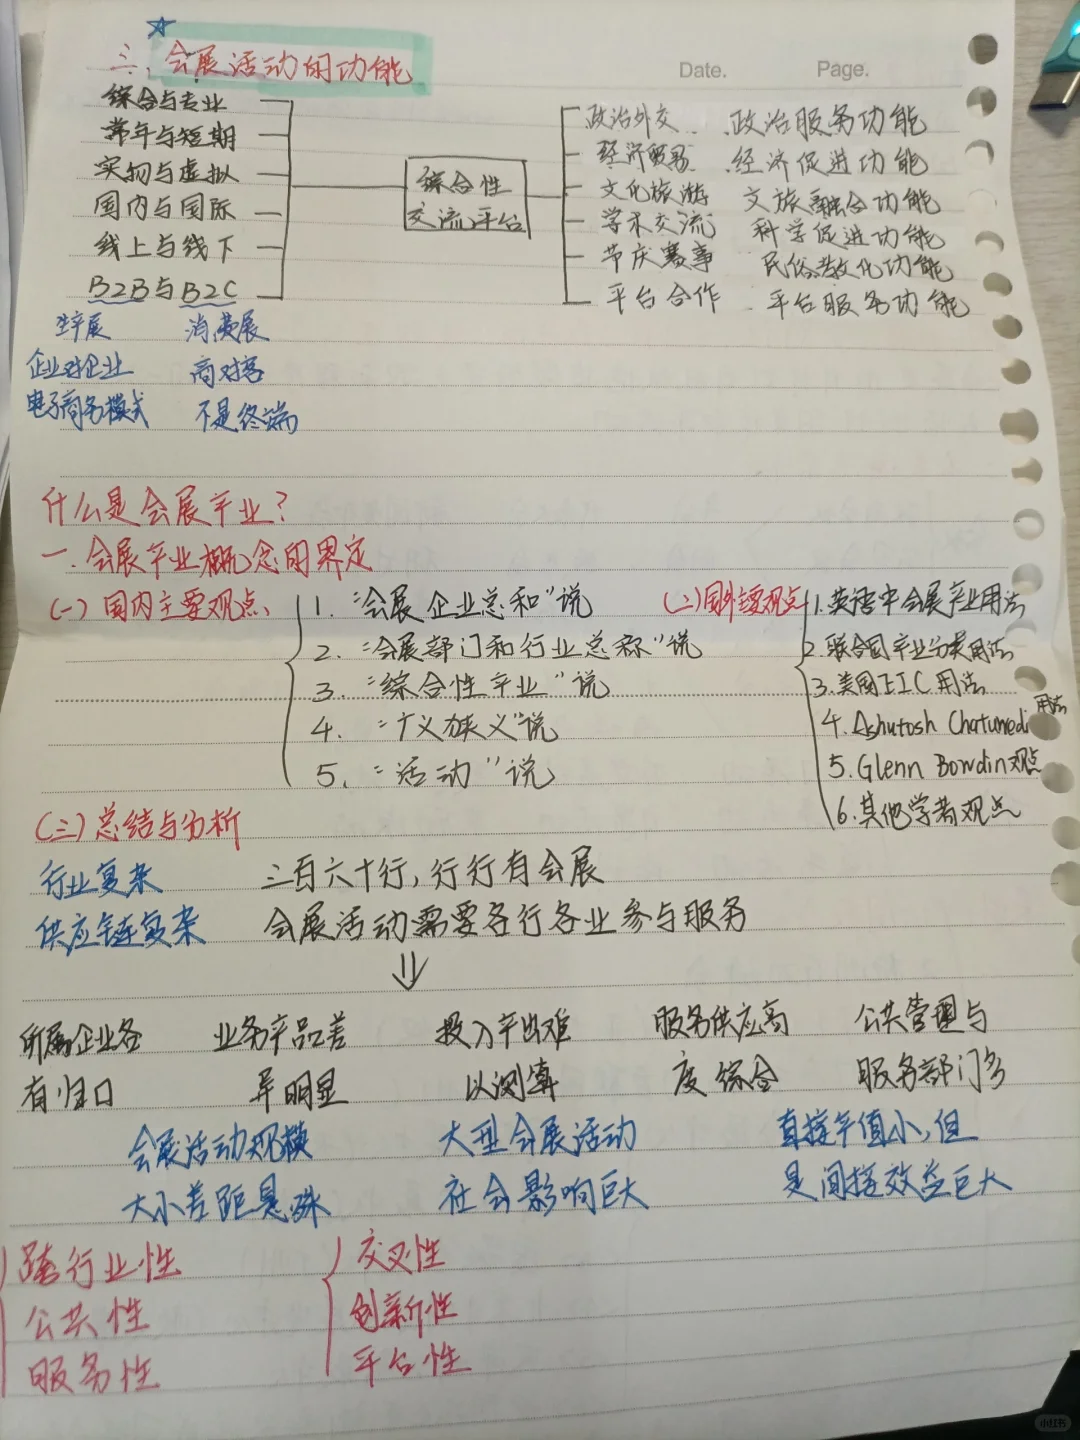 三、会展活动的功能
Date. Page.
综合与专业
常年与短期
实物与虚拟
国内与国际
线上与线下
B2B与B2C
综合性
交流平台
政治外交 政治服务功能
经济贸易 经济促进功能
文化旅游 文旅融合功能
学术交流 科学促进功能
节庆赛事 民俗教化功能
平台合作 平台服务功能
生产展 消费展
企业对企业 商对客
电子商务模式 不是终端
什么是会展产业?
一.会展产业概念的界定
(一)国内主要观点、
1.“会展企业总和”说
2.“会展部门和行业总称”说
3.“综合性产业”说
4.“广义狭义”说
5.“活动”说
(二)国外主要观点
1.英语中会展产业用法
2.联合国产业分类用法
3.美国EIC用法
4.Ashutosh Chaturvedi用法
5.Glenn Bowdin观点
6.其他学者观点
(三)总结与分析
行业复杂 三百六十行,行行有会展
供应链复杂 会展活动需要各行各业参与服务
⇓
所属企业各 业务产品差 投入产出难 服务供应高 公共管理与
有归口 异明显 以测算 度综合 服务部门多
会展活动规模 大型会展活动 直接产值小,但
大小差距悬殊 社会影响巨大 是间接效益巨大
跨行业性 交叉性
公共性 创新性
服务性 平台性
小红书